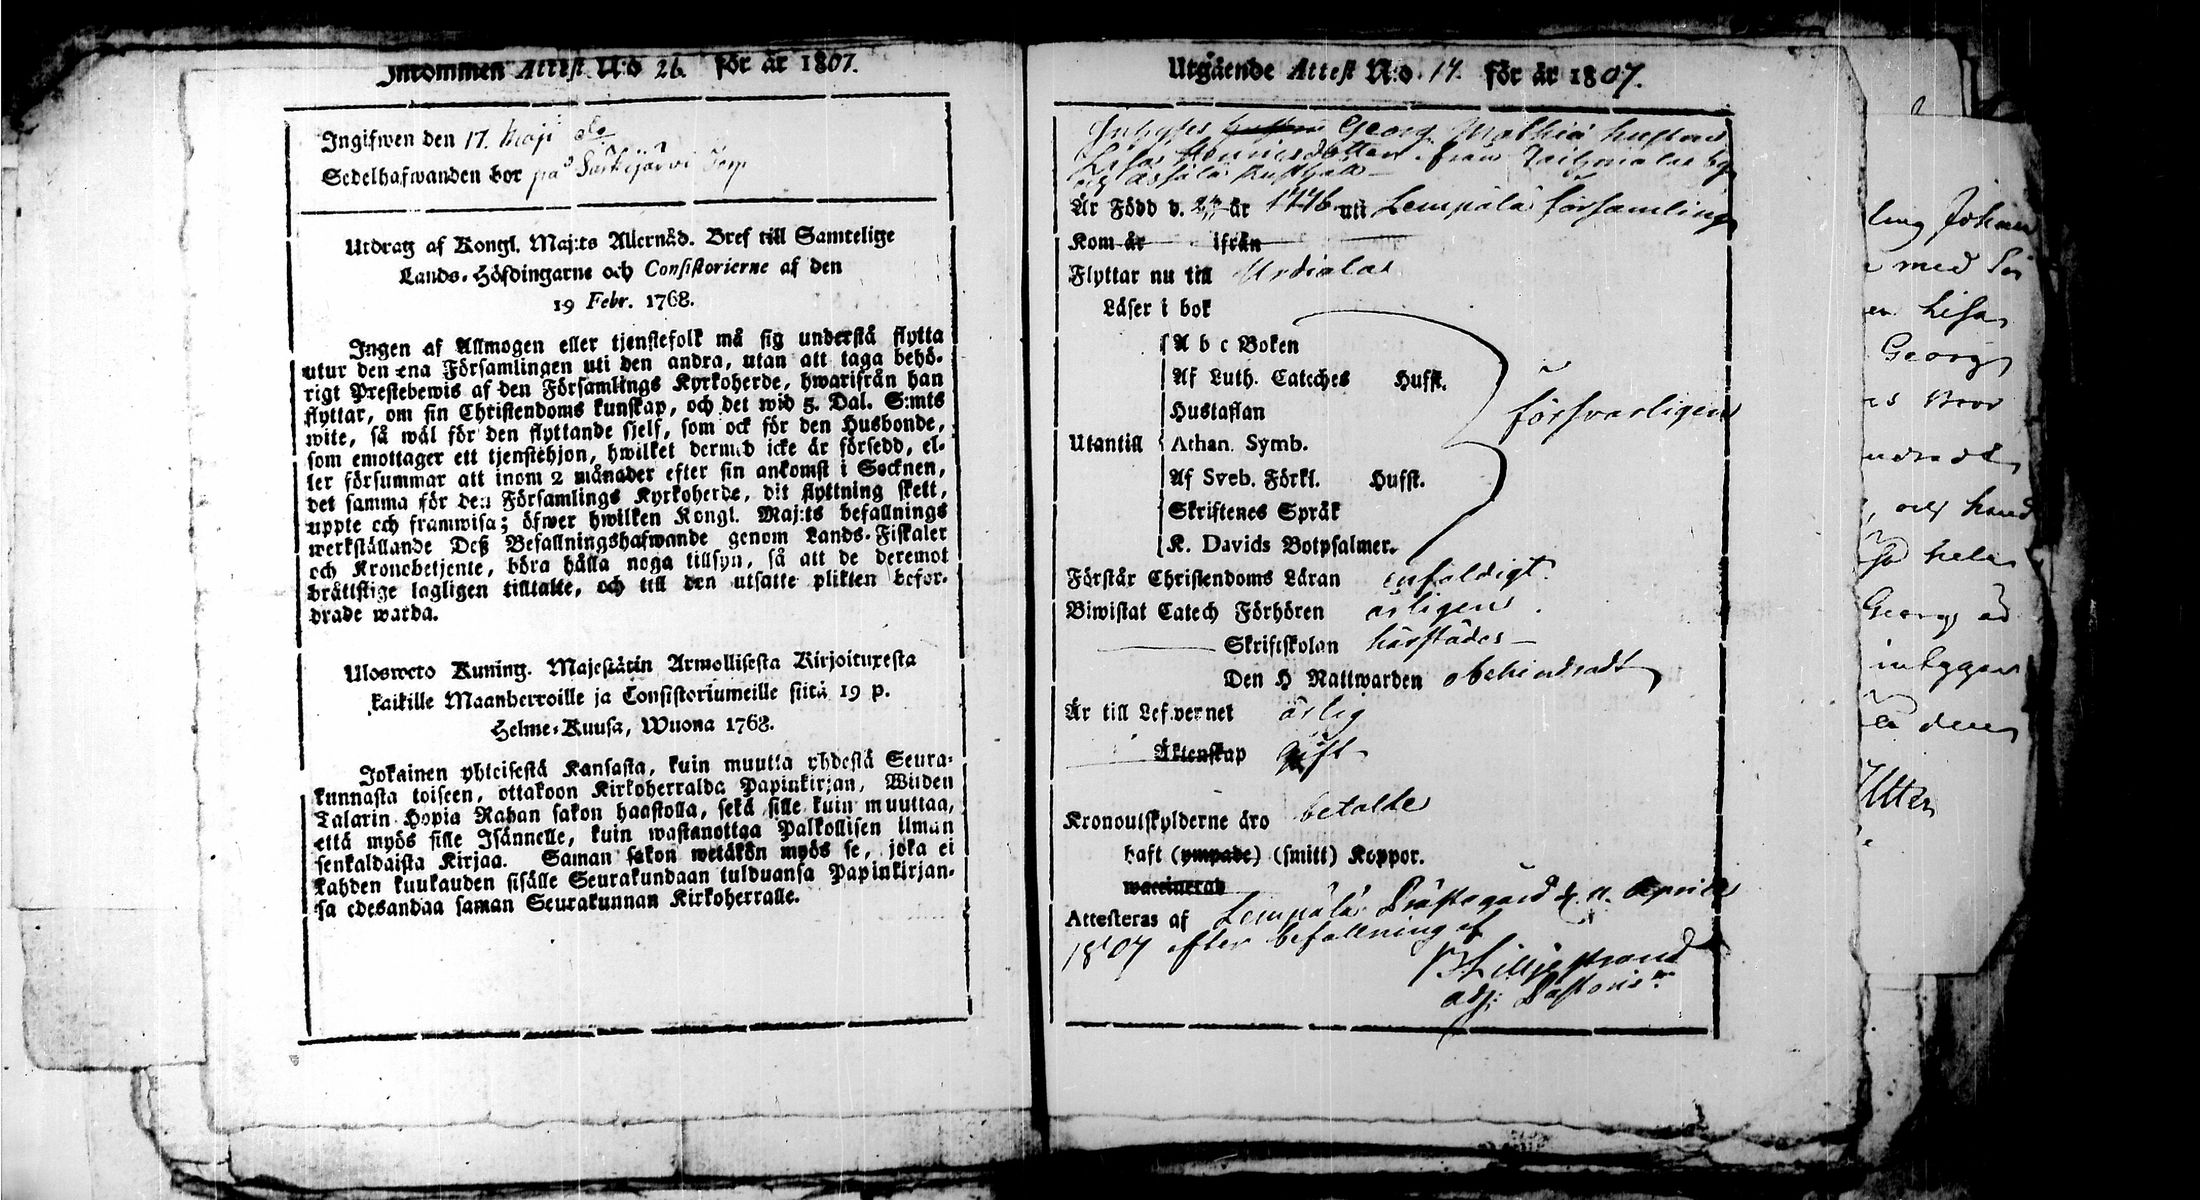 Inkommen Attest N:o 26. för år 1807.
Ingifwen den 17. Maji
Sedelhafwanden bor på Särkijärvi Torp
Utdrag af Kongl. Maj:ts Allernåd. Bref till Samtelige
Lands-Höfdingarne och Consistorierne af den
19 Febr. 1768.
Ingen af Allmogen eller tjenstefolk må sig understå flytta
utur den ena Församlingen uti den andra, utan att taga behö-
rigt Prestebewis af den Församlings Kyrkoherde, hwarifrån han
flyttar, om sin Christendoms kunskap, och det wid 5. Dal. S:mts
wite, så wäl för den flyttande sjelf, som ock för den Husbonde,
som emottager ett tjenstehjon, hwilket dermed icke är försedd, el-
ler försummar att inom 2 månader efter sin ankomst i Socknen,
det samma för den Församlings Kyrkoherde, dit flyttning skett,
uppte och framwisa; öfwer hwilken Kongl. Maj:ts befallnings
werkställande Deß Befallningshafwande genom Lands-Fiskaler
och Kronobetjente, böra hålla noga tillsyn, så att de deremot
bråttslige lagligen tilltalte, och till den utsatte plikten befor-
drade warda.
Uloswetö Kuning. Majestätin Armollisesta Kirjoituxesta
kaikille Maanherroille ja Consistoriumeille siitä 19 p.
Helme-Kuusa, Wuona 1768.
Jokainen yhteisestä Kansasta, kuin muutta yhdestä Seura-
kunnasta toiseen, ottakoon Kirkoherralda Papinkirjan, Wiiden
Talarin Hopia Rahan sakon haastolla, sekä sille kuin muuttaa,
että myös sille Isännelle, kuin wastanottaa Palkollisen ilman
senkaldaista Kirjaa. Saman sakon wetäkön myös se, joka ei
kahden kuukauden sisälle Seurakundaan tulduansa Papinkirjan-
sa edesandaa saman Seurakunnan Kirkoherralle.
Utgående Attest N:o. 14. för år 1807.
Inhyses Georg Mathiä hustru
Lisa Henricsdotter från by
och Assila Rusthåll
Är Född d. år 1776 uti Lempälä församling
Kom år ifrån
Flyttar nu till Urdiala
Läser i bok
A b c Boken
Af Luth. Cateches Husst.
Hustaflan
försvarligen
Utantill Athan. Symb.
Af Sveb. Förkl. Husst.
Skriftenes Språk
K. Davids Botpsalmer.
Förstår Christendoms Läran enfaldigt.
Biwistat Catech Förhören årligen.
Skriftskolan härstädes
Den H Nattwarden obehindradt
Är till Lefvernet ärlig
Äktenskap gift
Kronoutskylderne äro betalde
haft (ympade) (smitt) Koppor.
waccinerad
Attesteras af Lempälä Prästegård d. 11. Aprill
1807 efter befallning af
Lilljestrand
adj: Pastoris
Johan
med
Lisa
Georg
och
hela
Georg